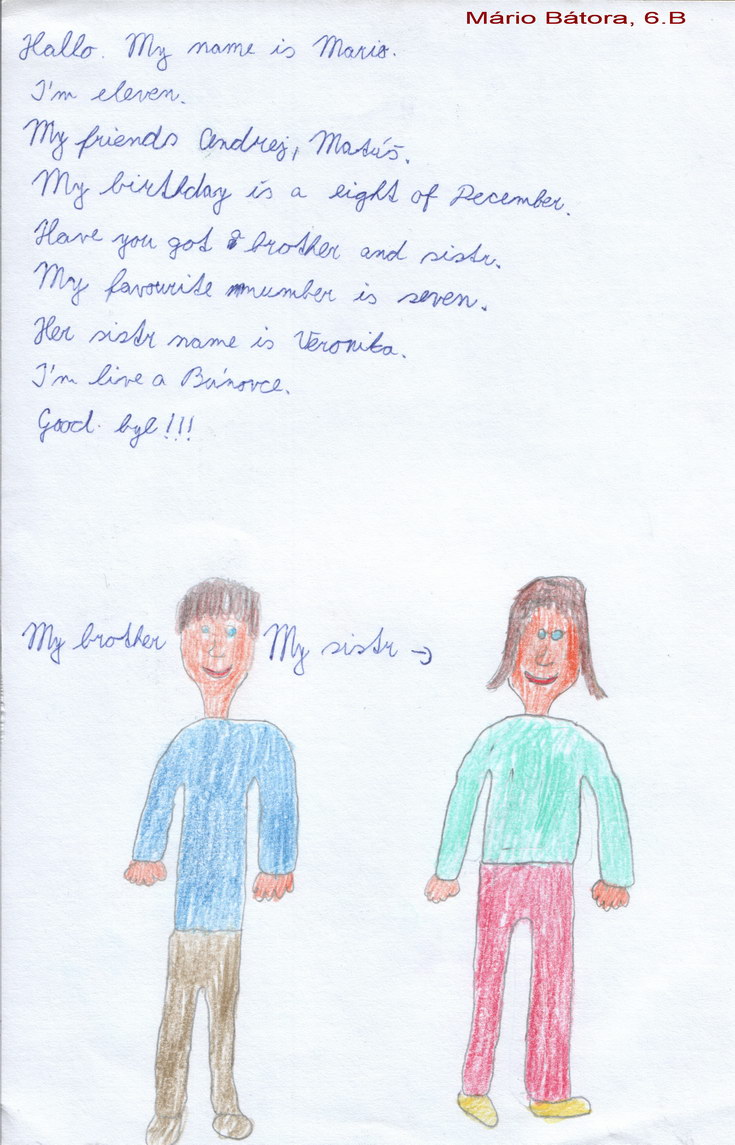 Mário Bátora, 6.B
Hallo. My name is Mario.
I'm eleven.
My friends Andrej, Matúš.
My birthday is a eight of December.
Have you got brother and sistr.
My favourite number is seven.
Her sistr name is Veronika.
I'm live a Bánovce.
Good bye!!!
My brother
My sistr →